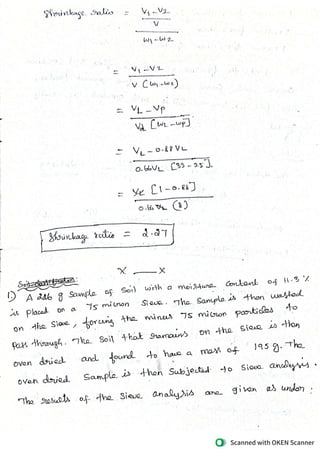 Shrinkage ratio = V1 - V2
V
W1 - W2
= V1 - V2
V (W1 - W2)
= VL - Vp
Vd [WL - Wp]
= VL - 0.88 VL
0.66 VL [33 - 25]
= VL [1 - 0.88]
0.66 VL (8)
Shrinkage ratio = 2.27
X — X
1) A 226 g Sample of Soil with a moisture content of 11.3 %
is placed on a 75 micron Sieve. The Sample is then washed
on the Sieve, forcing the minus 75 micron particles to
Pass through. The Soil that remains on the Sieve is then
oven dried and found to have a mass of 195 g. The
oven dried Sample is then Subjected to Sieve analysis.
The results of the Sieve analysis are given as under:
Scanned with OKEN Scanner